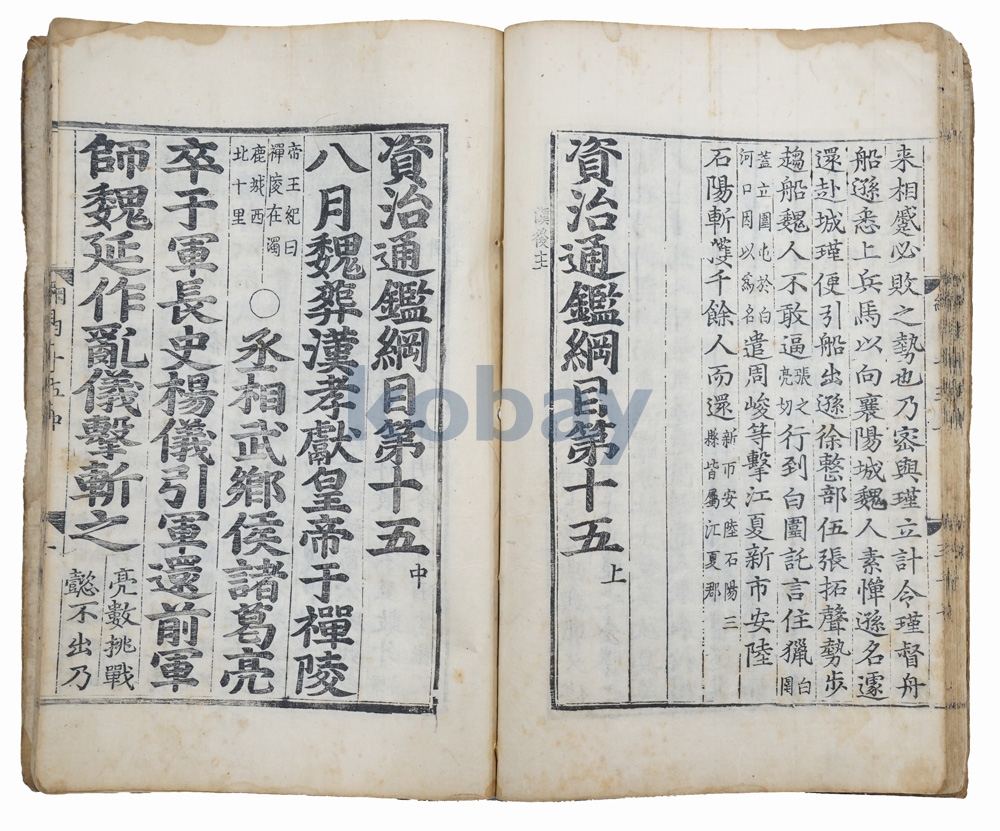 来相蹙必敗之勢也乃密與瑾立計令瑾督舟
船遜悉上兵馬以向襄陽城魏人素憚遜名遽
還赴城瑾便引船出遜徐整部伍張拓聲勢步
趨船魏人不敢逼張之亮切行到白圍託言住獵白圍
蓋立圍屯於白河口因以爲名遣周峻等擊江夏新市安陸
石陽斬獲千餘人而還新市安陸石陽三縣皆屬江夏郡
資治通鑑綱目第十五上
漢後主
資治通鑑綱目第十五中
八月魏葬漢孝獻皇帝于禪陵
帝王紀曰禪陵在濁鹿城西北十里〇丞相武鄉侯諸葛亮
卒于軍長史楊儀引軍還前軍
師魏延作亂儀擊斬之亮數挑戰懿不出乃
kobay